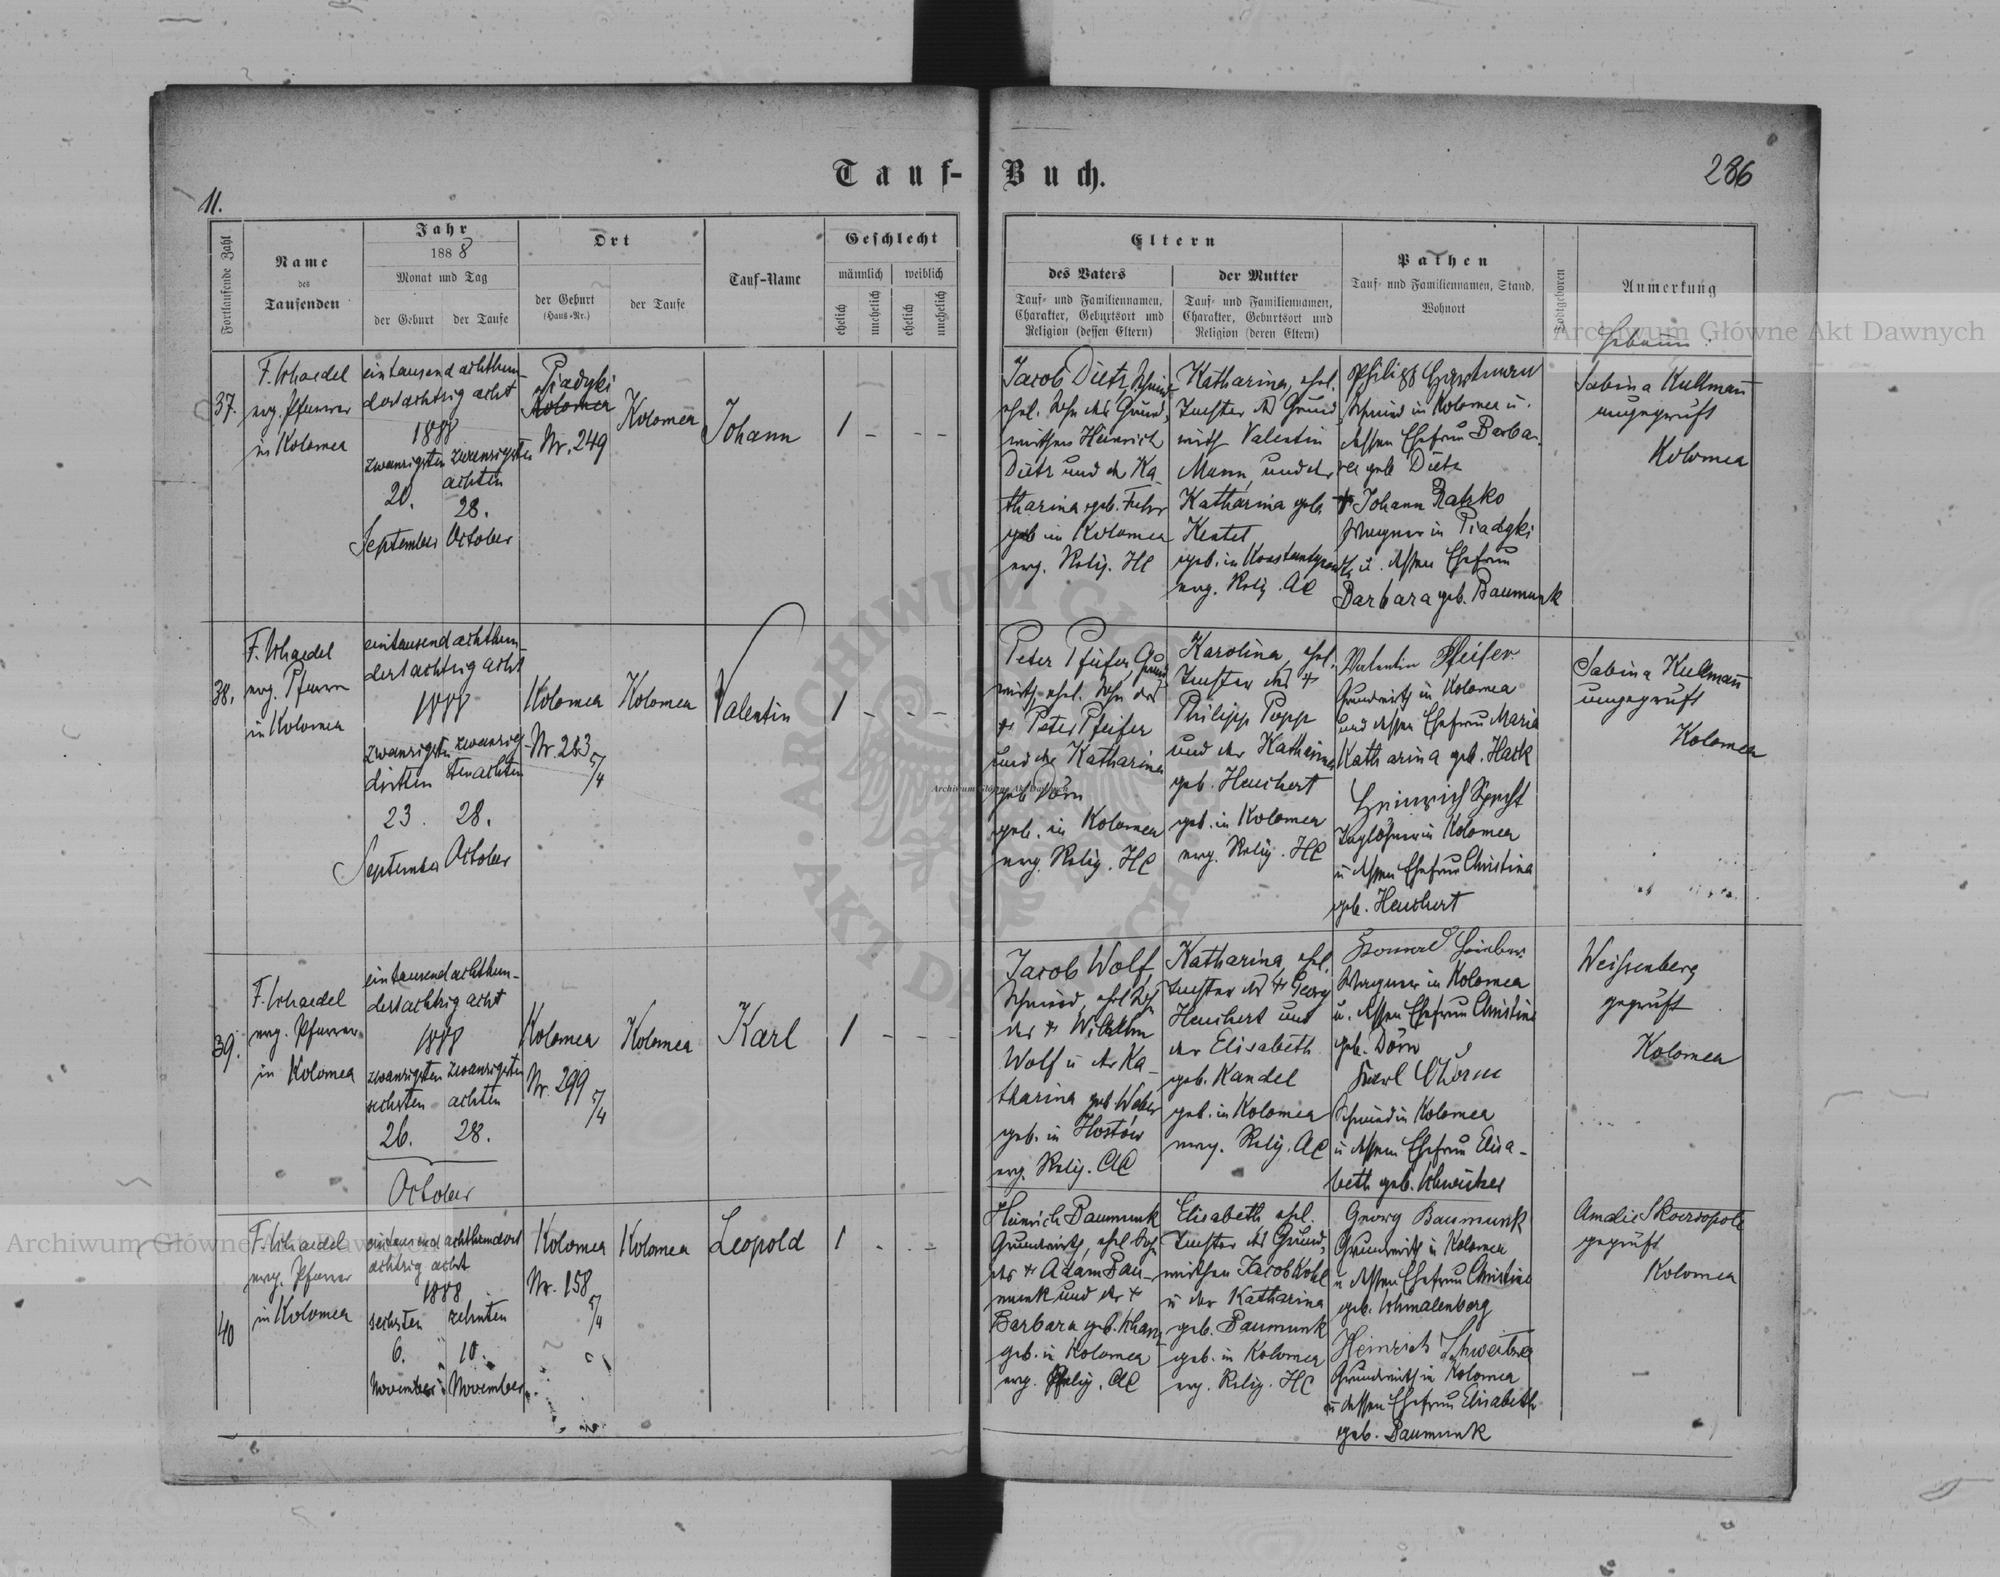 Tauf-Buch.
11.
286
Fortlaufende Zahl
Name
des
Taufenden
Jahr
1888
Monat und Tag
der Geburt
der Taufe
Ort
der Geburt
(Haus-Nr.)
der Taufe
Tauf-Name
Geschlecht
männlich
weiblich
ehelich
unehelich
ehelich
unehelich
Eltern
des Vaters
Tauf- und Familiennamen,
Charakter, Geburtsort und
Religion (dessen Eltern)
der Mutter
Tauf- und Familiennamen,
Charakter, Geburtsort und
Religion (deren Eltern)
Pathen
Tauf- und Familiennamen, Stand,
Wohnort
Todtgeboren
Anmerkung
37.
F. Schaedel
evg. Pfarrer
in Kolomea
eintausend achthun-
dertachtzig acht
1888
zwanzigsten
20.
September
zwanzigsten
achten
28.
October
Piadyki
Kolomea
Nr. 249
Kolomea
Johann
1 - - -
Jacob Dietz, Schmied
ehel. Sohn des Grund-
wirthen Heinrich
Dietz und der Ka-
tharina geb. Fuhr
geb in Kolomea
evg. Relig. HC
Katharina, ehel.
Tochter des Grund
wirth Valentin
Mann, und der
Katharina geb.
geb. in
evg. Relig. AC
Philipp Hartmann
Schmied in Kolomea u.
dessen Ehefrau Barba-
ra geb Dietz
Johann Ratzko
Wagner in Piadyki
u. dessen Ehefrau
Barbara geb. Baumunk
Hebamme:
Sabina Kullmann
ungeprüft
Kolomea
38.
F. Schaedel
evg. Pfarrer
in Kolomea
eintausend achthun-
dertachtzig acht
1888
zwanzigsten
dritten
23.
September
zwanzig
sten achten
28.
October
Kolomea
Nr. 283 5/4
Kolomea
Valentin
1 - - -
Peter Pfeifer, Grund
wirth, ehel. Sohn des
+ Peter Pfeifer
und der Katharina
geb Dörn
geb. in Kolomea
evg. Relig. HC
Karolina, ehel.
Tochter des +
Philipp Popp
und der Katharina
geb. Heuchert
geb. in Kolomea
evg. Relig. HC
Valentin Pfeifer
Grundwirth in Kolomea
und dessen Ehefrau Maria
Katharina geb. Hack
Heinrich Specht
Taglöhner in Kolomea
u dessen Ehefrau Christina
geb. Heuchert
Sabina Kullmann
ungeprüft
Kolomea
39.
F. Schaedel
evg. Pfarrer
in Kolomea
eintausend achthun-
dertachtzig acht
1888
zwanzigsten
sechsten
26.
zwanzigsten
achten
28.
October
Kolomea
Nr. 299 5/4
Kolomea
Karl
1 - - -
Jacob Wolf
Schmied, ehel Sohn
des + Wilhelm
Wolf u der Ka-
tharina geb Weber
geb. in Hostów
evg. Relig. AC
Katharina, ehel.
Tochter des + Georg
Heuchert und
der Elisabeth
geb. Kandel
geb. in Kolomea
evg. Relig. AC
Wagner in Kolomea
u. dessen Ehefrau Christina
geb. Dörn
Karl
Schmied in Kolomea
u dessen Ehefrau Elisa-
beth geb.
Weissenberg
geprüft
Kolomea
40
F. Schaedel
evg. Pfarrer
in Kolomea
eintausend achthundert
achtzig acht
1888
sechsten
6.
November
zehnten
10.
November
Kolomea
Nr. 158 5/4
Kolomea
Leopold
1 - - -
Heinrich Baumunk
Grundwirth, ehel Sohn
des + Adam Bau-
munk und der +
Barbara geb.
geb. in Kolomea
evg. Relig. AC
Elisabeth ehel.
Tochter des Grund-
wirthen Jacob Kohl
u der Katharina
geb. Baumunk
geb. in Kolomea
evg. Relig. HC
Georg Baumunk
Grundwirth in Kolomea
u dessen Ehefrau Christina
geb. Schmalenberg
Heinrich Schweitzer
Grundwirth in Kolomea
u dessen Ehefrau Elisabeth
geb. Baumunk
Amalie
geprüft
Kolomea
Archiwum Główne Akt Dawnych
Archiwum Główne Akt Dawnych
Archiwum Główne Akt Dawnych